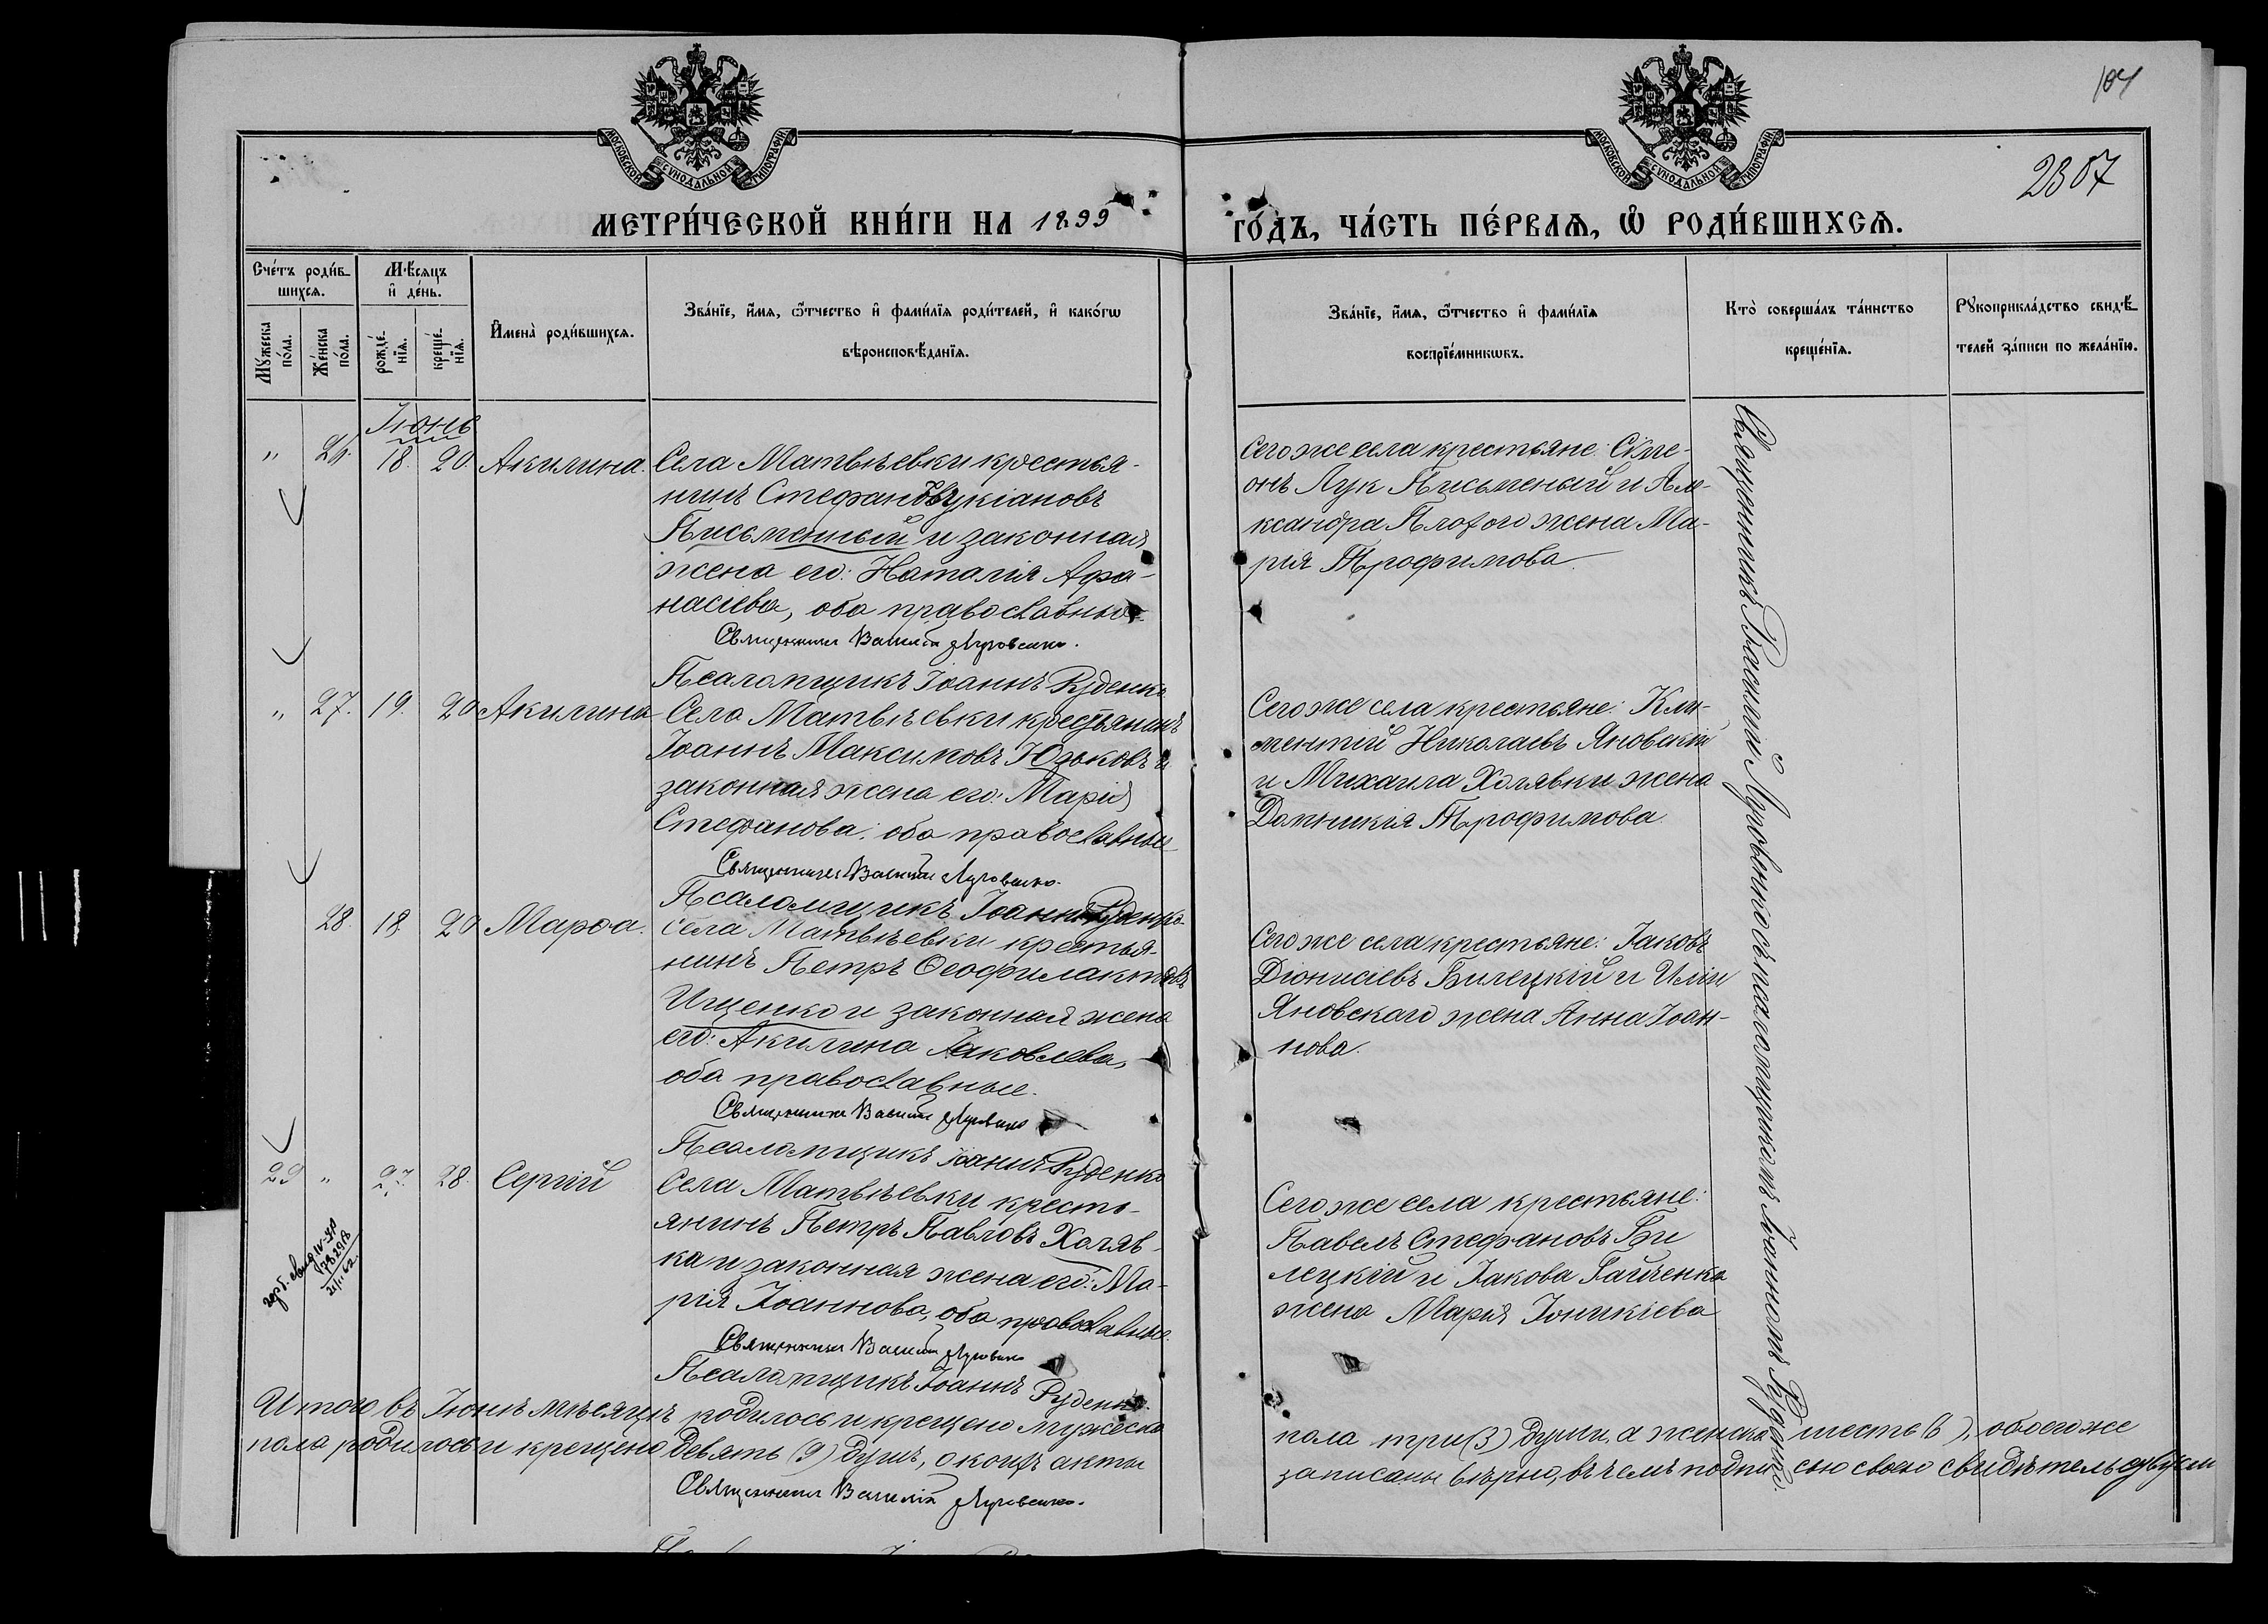 104
2307
МОСКОВСКОЙ СѴНОДАЛЬНОЙ ТИПОГРАФІИ
МОСКОВСКОЙ СѴНОДАЛЬНОЙ ТИПОГРАФІИ
МЕТРИ́ЧЕСКОЙ КНИ́ГИ НА 1899
ГО́ДЪ, ЧА́СТЬ ПЕ́РВАѦ, Ѡ҆ РОДИ́ВШИХСѦ.
Сче́тъ роди́в-
шихсѧ.
Мѣ́сяцъ
и҆ де́нь.
Мꙋ́жеска по́ла.
Же́нска по́ла.
рожде́нїѧ.
креще́нїѧ.
И҆мена̀ роди́вшихсѧ.
Зва́нїе, и҆́мѧ, ѻ҆́тчество и҆ фами́лїѧ роди́телей, и҆ како́гѡ
вѣроисповѣ́данїѧ.
Зва́нїе, и҆́мѧ, ѻ҆́тчество и҆ фами́лїѧ
воспрїе́мникѡвъ.
Кто̀ соверша́лъ та́инство
креще́нїѧ.
Рꙋкоприкла́дство свидѣ́-
телей за́писи по жела́нїю.
Іюнь
" 18. 20. Акилина. Села Матвѣевки крестья-
нинъ Стефанъ
Письменный и законная
жена его: Наталія Афа-
насіева, оба православные.
Священникъ Василій Луговенко.
Псаломщикъ Іоаннъ Руденко
Сего же села крестьяне: Симе-
онъ Лук Письменый и Але-
ксандра жена Ма-
рія Трофимова.
" 27. 19. 20 Акилина Села Матвѣевки крестьянинъ
Іоаннъ Максимовъ Юзьковъ и
законная жена его: Марія
Стефанова, оба православные
Священникъ Василій Луговенко.
Псаломщикъ Іоаннъ Руденко
Сего же села крестьяне: Кли-
ментій Николаевъ Яновскій
и Михаила Холявки жена
Домникія Трофимова.
28. 18 20 Марѳа. Села Матвѣевки крестья-
нинъ Петръ Ѳеофилактовъ
Ищенко и законная жена
его: Акилина Іаковлева,
оба православные.
Священникъ Василій Луговенко
Псаломщикъ Іоаннъ Руденко
Сего же села крестьяне: Іаковъ
Діонисіевъ Билецкій и Иліи
Яновскаго жена Анна Іоан-
нова.
29 " 27. 28. Сергій Села Матвѣевки кресть-
янинъ Петръ Павловъ Холяв-
ка и законная жена его: Ма-
рія Іоаннова, оба православные.
Священникъ Василій Луговенко
Псаломщикъ Іоаннъ Руденко.
Сего же села крестьяне:
Павелъ Стефановъ Би
лецкій и Іакова Гайченка
жена Марія Іоникіева
Священникъ Василій Луговенко съ псаломщикомъ Іоанномъ Руденко.
Итого въ Іюнѣ мѣсяцѣ родилось и крещено мужеска пола три (3) души, а женска шесть (6), обоего же
пола родилось и крещено девять (9) душъ, о коихъ акты записаны вѣрно, въ чемъ подписью своею свидѣтельствуемъ
Священникъ Василій Луговенко.